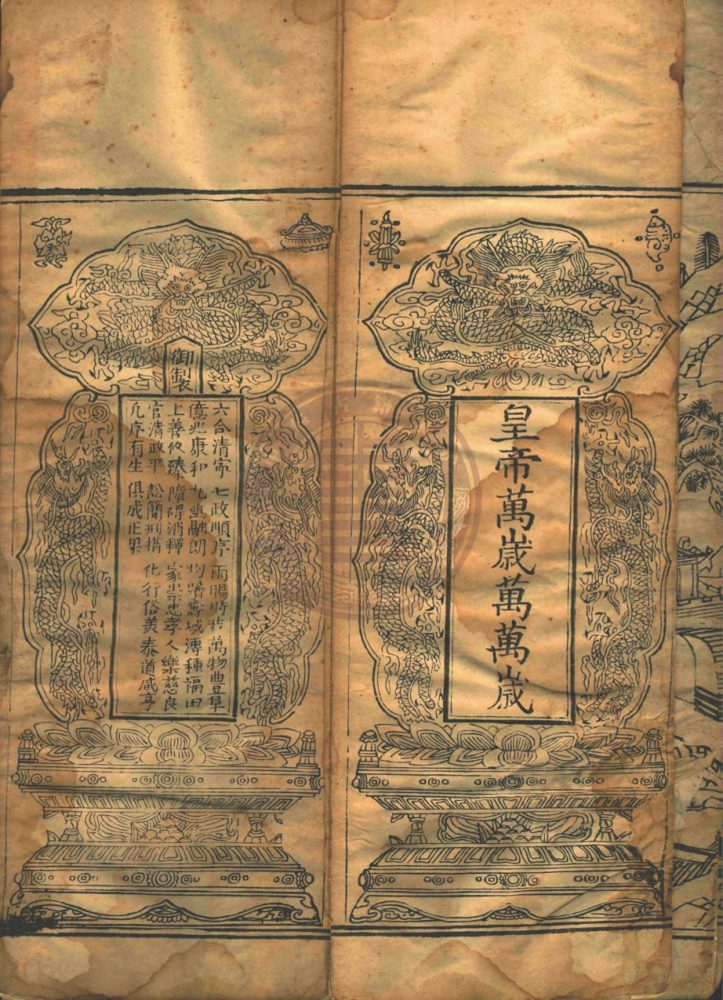 皇帝萬歲萬萬歲
御製
六合清寧 七政順序 雨暘時若 萬物豊阜
億兆康和 九幽融朗 均躋壽域 溥種福田
上善攸臻 障礙消釋 家崇忠孝 人樂慈良
官清政平 訟簡刑措 化行俗美 泰道咸亨
凡厥有生 俱成正果